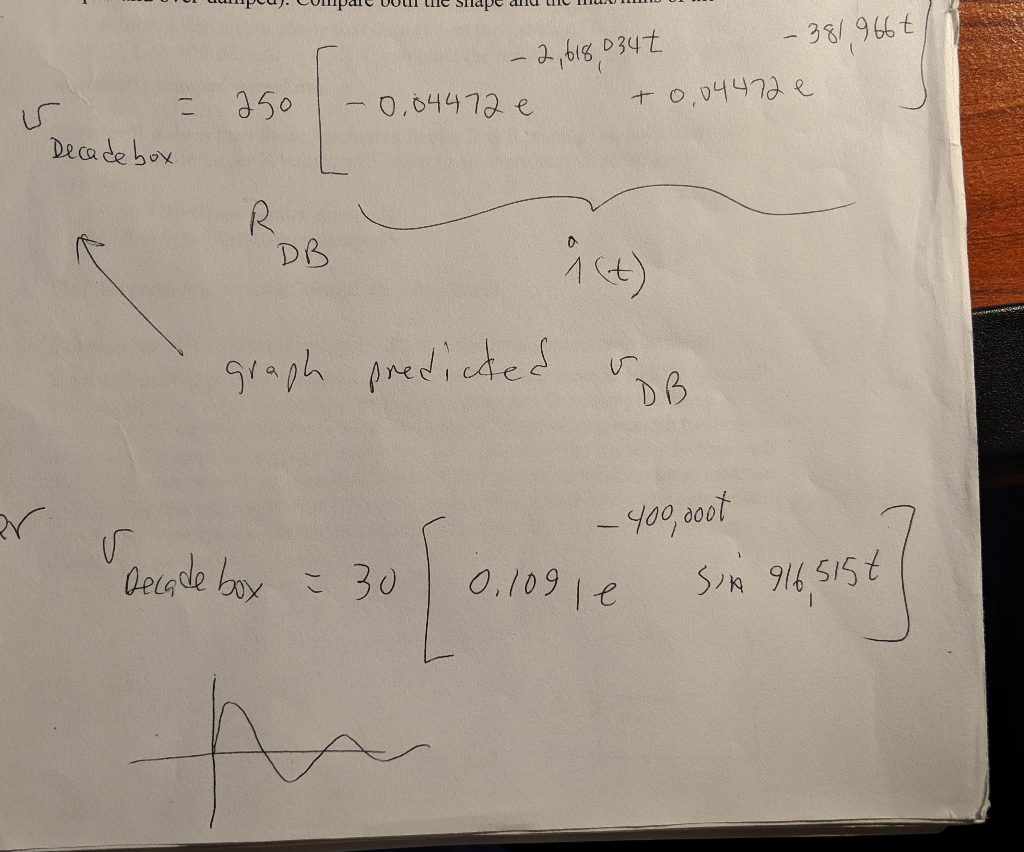 and over-damped). Compare both the shape and the max/mins of the
v Decade box = 250 [ - 0.04472 e -2,618,034t + 0.04472 e -381,966t ]
R DB
i(t)
graph predicted v DB
v Decade box = 30 [ 0.1091 e -400,000t sin 916,515t ]